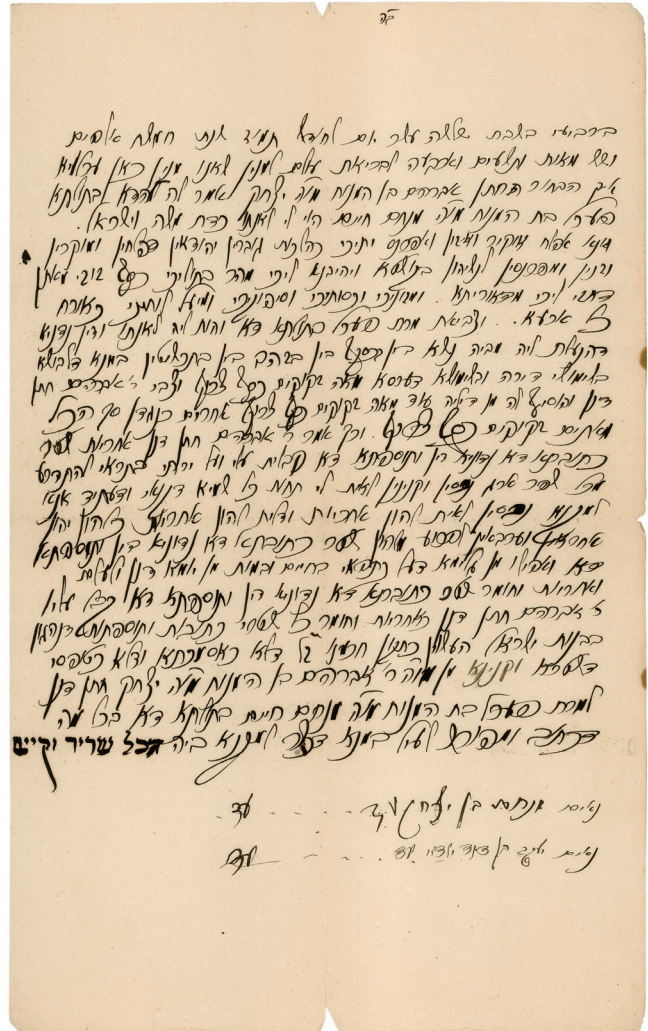 ב״ה
ברביעי בשבת שלשה עשר יום לחודש תמוז שנת חמשת אלפים
ושש מאות ותשעים וארבעה לבריאת עולם למנין שאנו מנין כאן
איך הבחור החתן אברהם בן המנוח מו״ה יצחק ואמר לה להדא בתולתא
בת המנוח מו״ה מנחם חיים הוי לי לאנתו כדת משה וישראל.
ואנא אפלח ואוקיר ואיזון ואפרנס יתיכי כהלכת גוברין יהודאין דפלחין ומוקרין
וזנין ומפרנסין לנשיהון בקושטא ויהיבנא ליכי מהר בתוליכי כסף זוזי מאתן
דחזי ליכי מדאורייתא. ומזוניכי וכסותיכי וסיפוקיכי ומיעל לותיכי כאורח
כל ארעא. וצביאת מרת בתולתא דא והות ליה לאנתו ודין נדוניא
דהנעלת ליה מבי נשא בין בכסף בין בדהב בין בתכשיטין במאנא דלבושא
בשימושי דירה ובשימושא דערסא מאה זקוקים כסף צרוף וצבי ר׳ אברהם חתן
דנן והוסיף לה מן דיליה עוד מאה זקוקים כסף צרוף אחרים כנגדן סך הכל
מאתים זקוקים כסף צרוף. וכך אמר ר׳ אברהם חתן דנן אחריות שטר
כתובתא דא נדוניא דין ותוספתא דא קבלית עלי ועל ירתי בתראי להתפרע
מכל שפר ארג נכסין וקנינין דאית לי תחות כל שמיא דקנאי ודעתיד אנא
למקנא נכסין דאית להון אחריות ודלית להון אחריות כלהון יהון
אחראין וערבאין לפרוע מנהון שטר כתובתא דא נדוניא דין ותוספתא
דא ואפילו מן גלימא דעל כתפאי בחיים ובמות מן יומא דנן ולעלם
ואחריות וחומר שטר כתובתא דא נדוניא דין ותוספתא דא קבל עליו
ר׳ אברהם חתן דנן כאחריות וחומר כל שטרי כתובות ותוספתות דנהגין
בבנות ישראל העשוין כתקון חכמינו ז״ל דלא כאסמכתא ודלא כטופסי
דשטרא וקנינא מן מו״ה ר׳ אברהם בן המנוח מו״ה יצחק חתן דנן
למרת בת המנוח מו״ה מנחם חיים בתולתא דא בכל מה
דכתוב ומפורש לעיל במנא דכשר למקנא ביה הכל שריר וקיים
נאום מנחם בן עד
נאום בן דוד עד עד